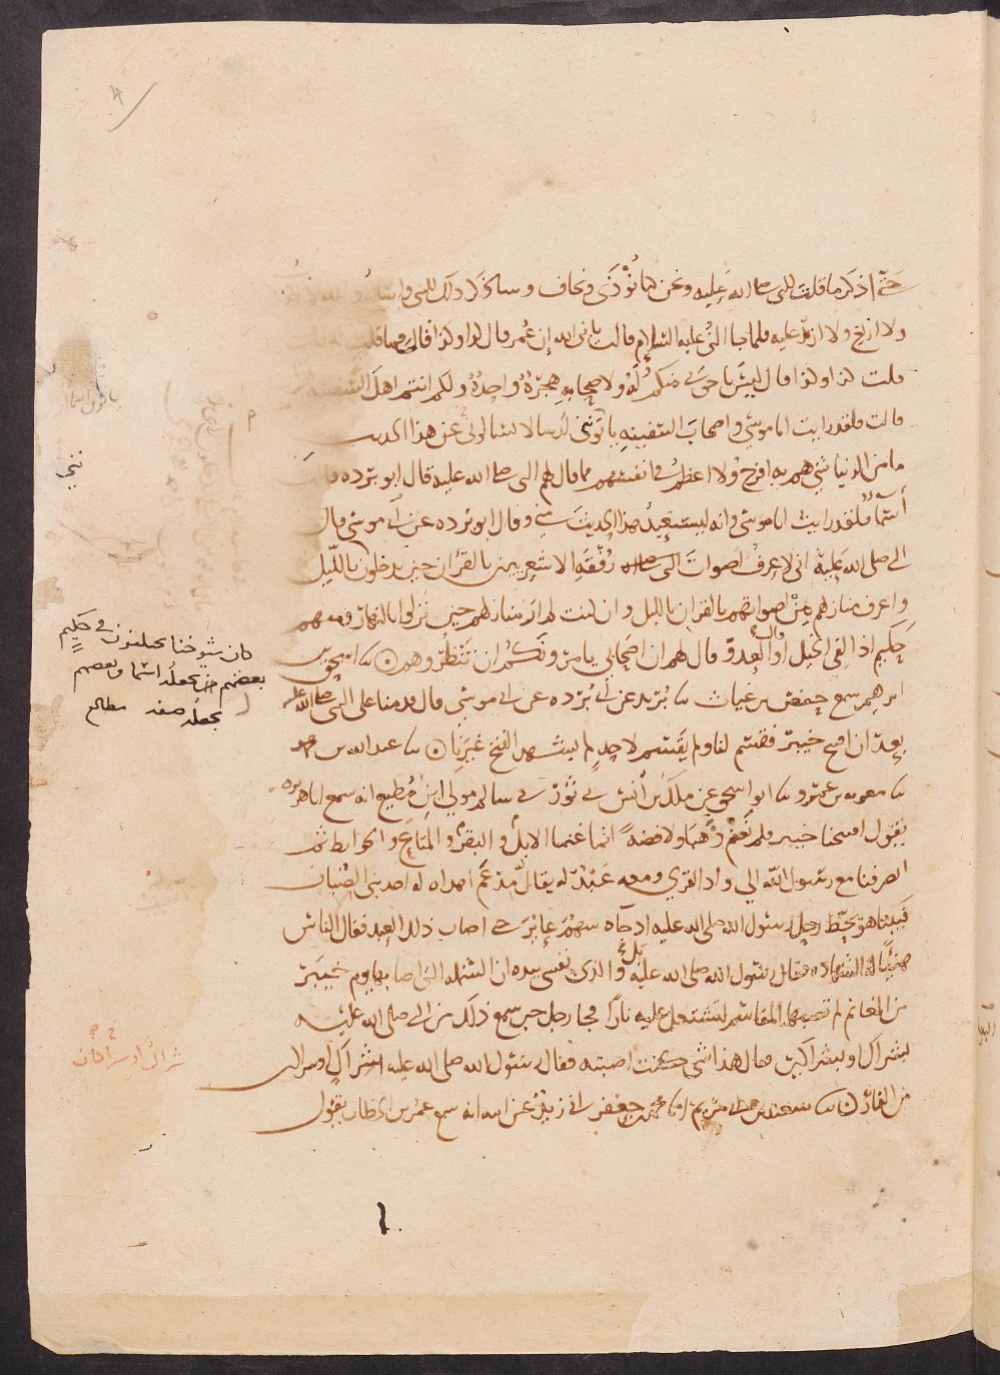 حتى اذكر ما قلت للنبي صلى الله عليه ونحن كنا نُؤْذَى ونخاف وساذكر ذلك للنبي واسئله والله لا اكذب
ولا ازيغ ولا ازيد عليه فلما جا النبي عليه السلام قالت يا نبي الله ان عُمر قال كذا وكذا قال فما قلت له
قلت كذا وكذا قال ليس باحق بي منكم وله ولاصحابه هجرةٌ واحدةٌ ولكم انتم اهل السفينة
قالت فلقد رايت ابا موسى واصحاب السفينه ياتوني ارسالا يسالوني عن هذا الحديث
ما من الدنيا شي هم به افرح ولا اعظم في انفسهم مما قال لهم النبي صلى الله عليه قال ابو برده قالت
أسما فلقد رايت ابا موسى وانه ليستعيد هذا الحديث مني وقال ابو برده عن ابي موسى قال
النبي صلى الله عليه اني لاعرف اصوات رُفْقَةِ الاشعريين بالقرآن حين يدخلون بالليل
واعرف منازلهم من اصواتهم بالقران بالليل وان كنت لم ار منازلهم حين نزلوا بالنهار ومنهم
حكيم اذا لقي الخيل او العدو قال لهم ان اصحابي يامرونكم ان تنظروهم ن نا اسحق بن
ابرهيم سمع حفص بن غياث نا بُريد عن ابي بُرده عن ابي موسى قال قدمنا على النبي صلى الله عليه
بعد ان افتتح خيبر فقسم لنا ولم يقسم لاحدٍ لم يشهد الفتح غيرنا ن نا عبد الله بن محمد
نا معويه بن عمرو نا ابو اسحق عن ملك بن أنس ني ثور ني سالم مولى ابن مُطيع انه سمع ابا هريره
يقول افتتحنا خيبر فلم نغنم ذهبًا ولا فضةً انما غنمنا الابل والبقر والمتاع والحوايط ثم
انصرفنا مع رسول الله الى واد القرى ومعه عَبْدٌ له يقال مِدعَم اهداه له احد بني الضباب
فبينما هو يحط رحل رسول الله صلى الله عليه اذ جاه سهم عاير حتى اصاب ذلك العبد فقال الناس
هنيًا له الشهاده فقال رسول الله صلى الله عليه بلى والذي نفسي بيده ان الشمله التي اصابها يوم خيبر
من المغانم لم تصبها المقاسم لتشتعل عليه نارًا فجا رجل حين سمع ذلك من النبي صلى الله عليه
بشراك او بشراكين فقال هذا شي كنت اصبته فقال رسول الله صلى الله عليه شراك او شراكان
من النار ن نا سعيد بن ابي مريم انا محمد بن جعفر اني زيد عن ابيه انه سمع عمر بن الخطاب يقول
كان شيوخنا يختلفون في حكيمٍ
بعضهم يجعله اسما وبعضهم
يجعله صفه
شراكٌ او شراكان